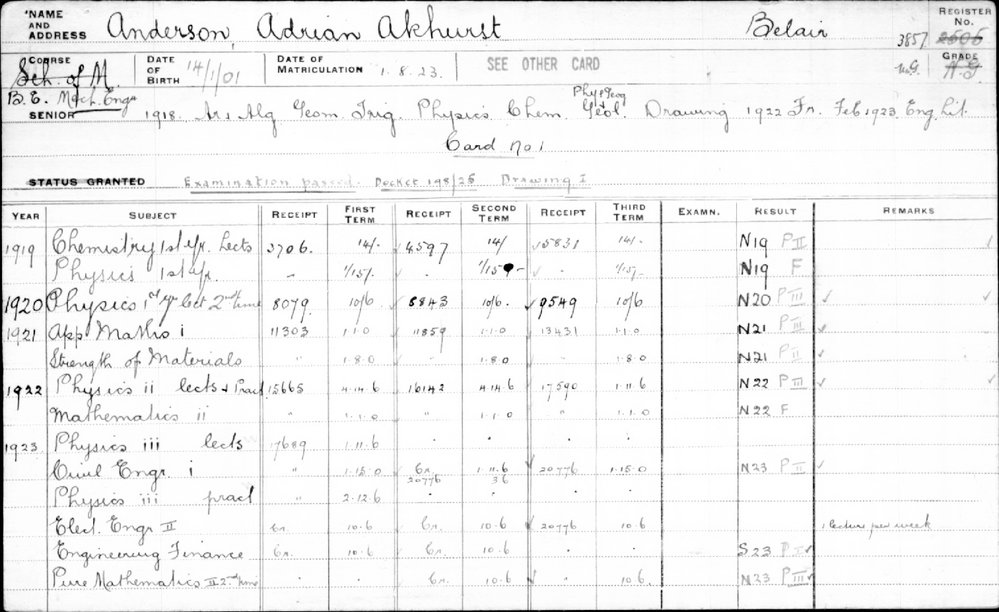 NAME AND ADDRESS Anderson, Adrian Akhurst Belair 3857 REGISTER No. 2606
COURSE Sch. of M DATE OF BIRTH 14/1/01 DATE OF MATRICULATION 1.8.23 SEE OTHER CARD N.G. GRADE A.G.
B.E. Mech. Engr
Phys Geog
SENIOR 1918. Ar, Alg Geom. Trig. Physics Chem. Geol. Drawing 1922 Fr. Feb 1923 Eng. Lit.
Card No 1
STATUS GRANTED Examination passed. Docket 198/26 Drawing I
YEAR SUBJECT RECEIPT FIRST TERM RECEIPT SECOND TERM RECEIPT THIRD TERM EXAMN. RESULT REMARKS
1919 Chemistry 1st yr. Lects 2706. 14/- 4597 14/ 5831 14/- N19 P II
Physics 1st yr. " 1/15/. . 1/15 - . 1/15/. N19 F
1920 Physics 1st yr Lect 2nd time 8079 10/6 8843 10/6. 9549 10/6 N20 P III
1921 App Maths i 11303 1.1.0 11859 1.1.0 13431 1.1.0 N21 P III
Strength of Materials " 1.8.0 " 1.8.0 1.8.0 N21 P II
1922 Physics ii lects + Pract 15665 4.14.6 16142 4.14.6 17590 1.11.6 N22 P III
Mathematics ii " 1.1.0 " 1.1.0 " 1.1.0 N22 F
1923 Physics iii lects 17689 1.11.6 . . .
Civil Engr. i " 1.15.0 Gr. 20776 1.11.6 3 6 20776 1.15.0 N23 P II
Physics iii pract " 2.12.6 . . .
Elect. Engr II Gr. 10.6 Gr. 10.6 20776 10.6 1 lecture per week
Engineering Finance Gr. 10.6 Gr. 10.6 . . S23 P II
Pure Mathematics II 2nd time . . Gr. 10.6 10.6. N23 P III